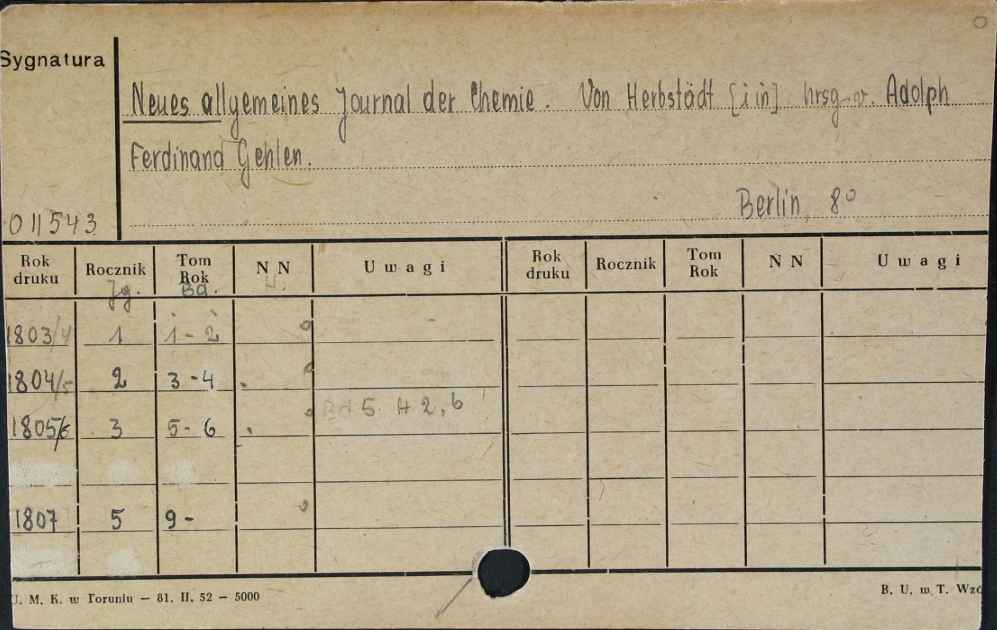 Sygnatura
Neues allgemeines Journal der Chemie. Von Herbstädt [i in] hrsg. v. Adolph
Ferdinand Gehlen.
Berlin, 8°
011543
Rok druku Rocznik Tom Rok N N Uwagi Rok druku Rocznik Tom Rok N N Uwagi
Jg. Bd. H.
1803/4 1 1-2
1804/5 2 3-4
Bd 5. H 2, 6
1805/6 3 5-6
1807 5 9-
U. M. K. w Toruniu — 81. II. 52 — 5000
B. U. w T. Wzó